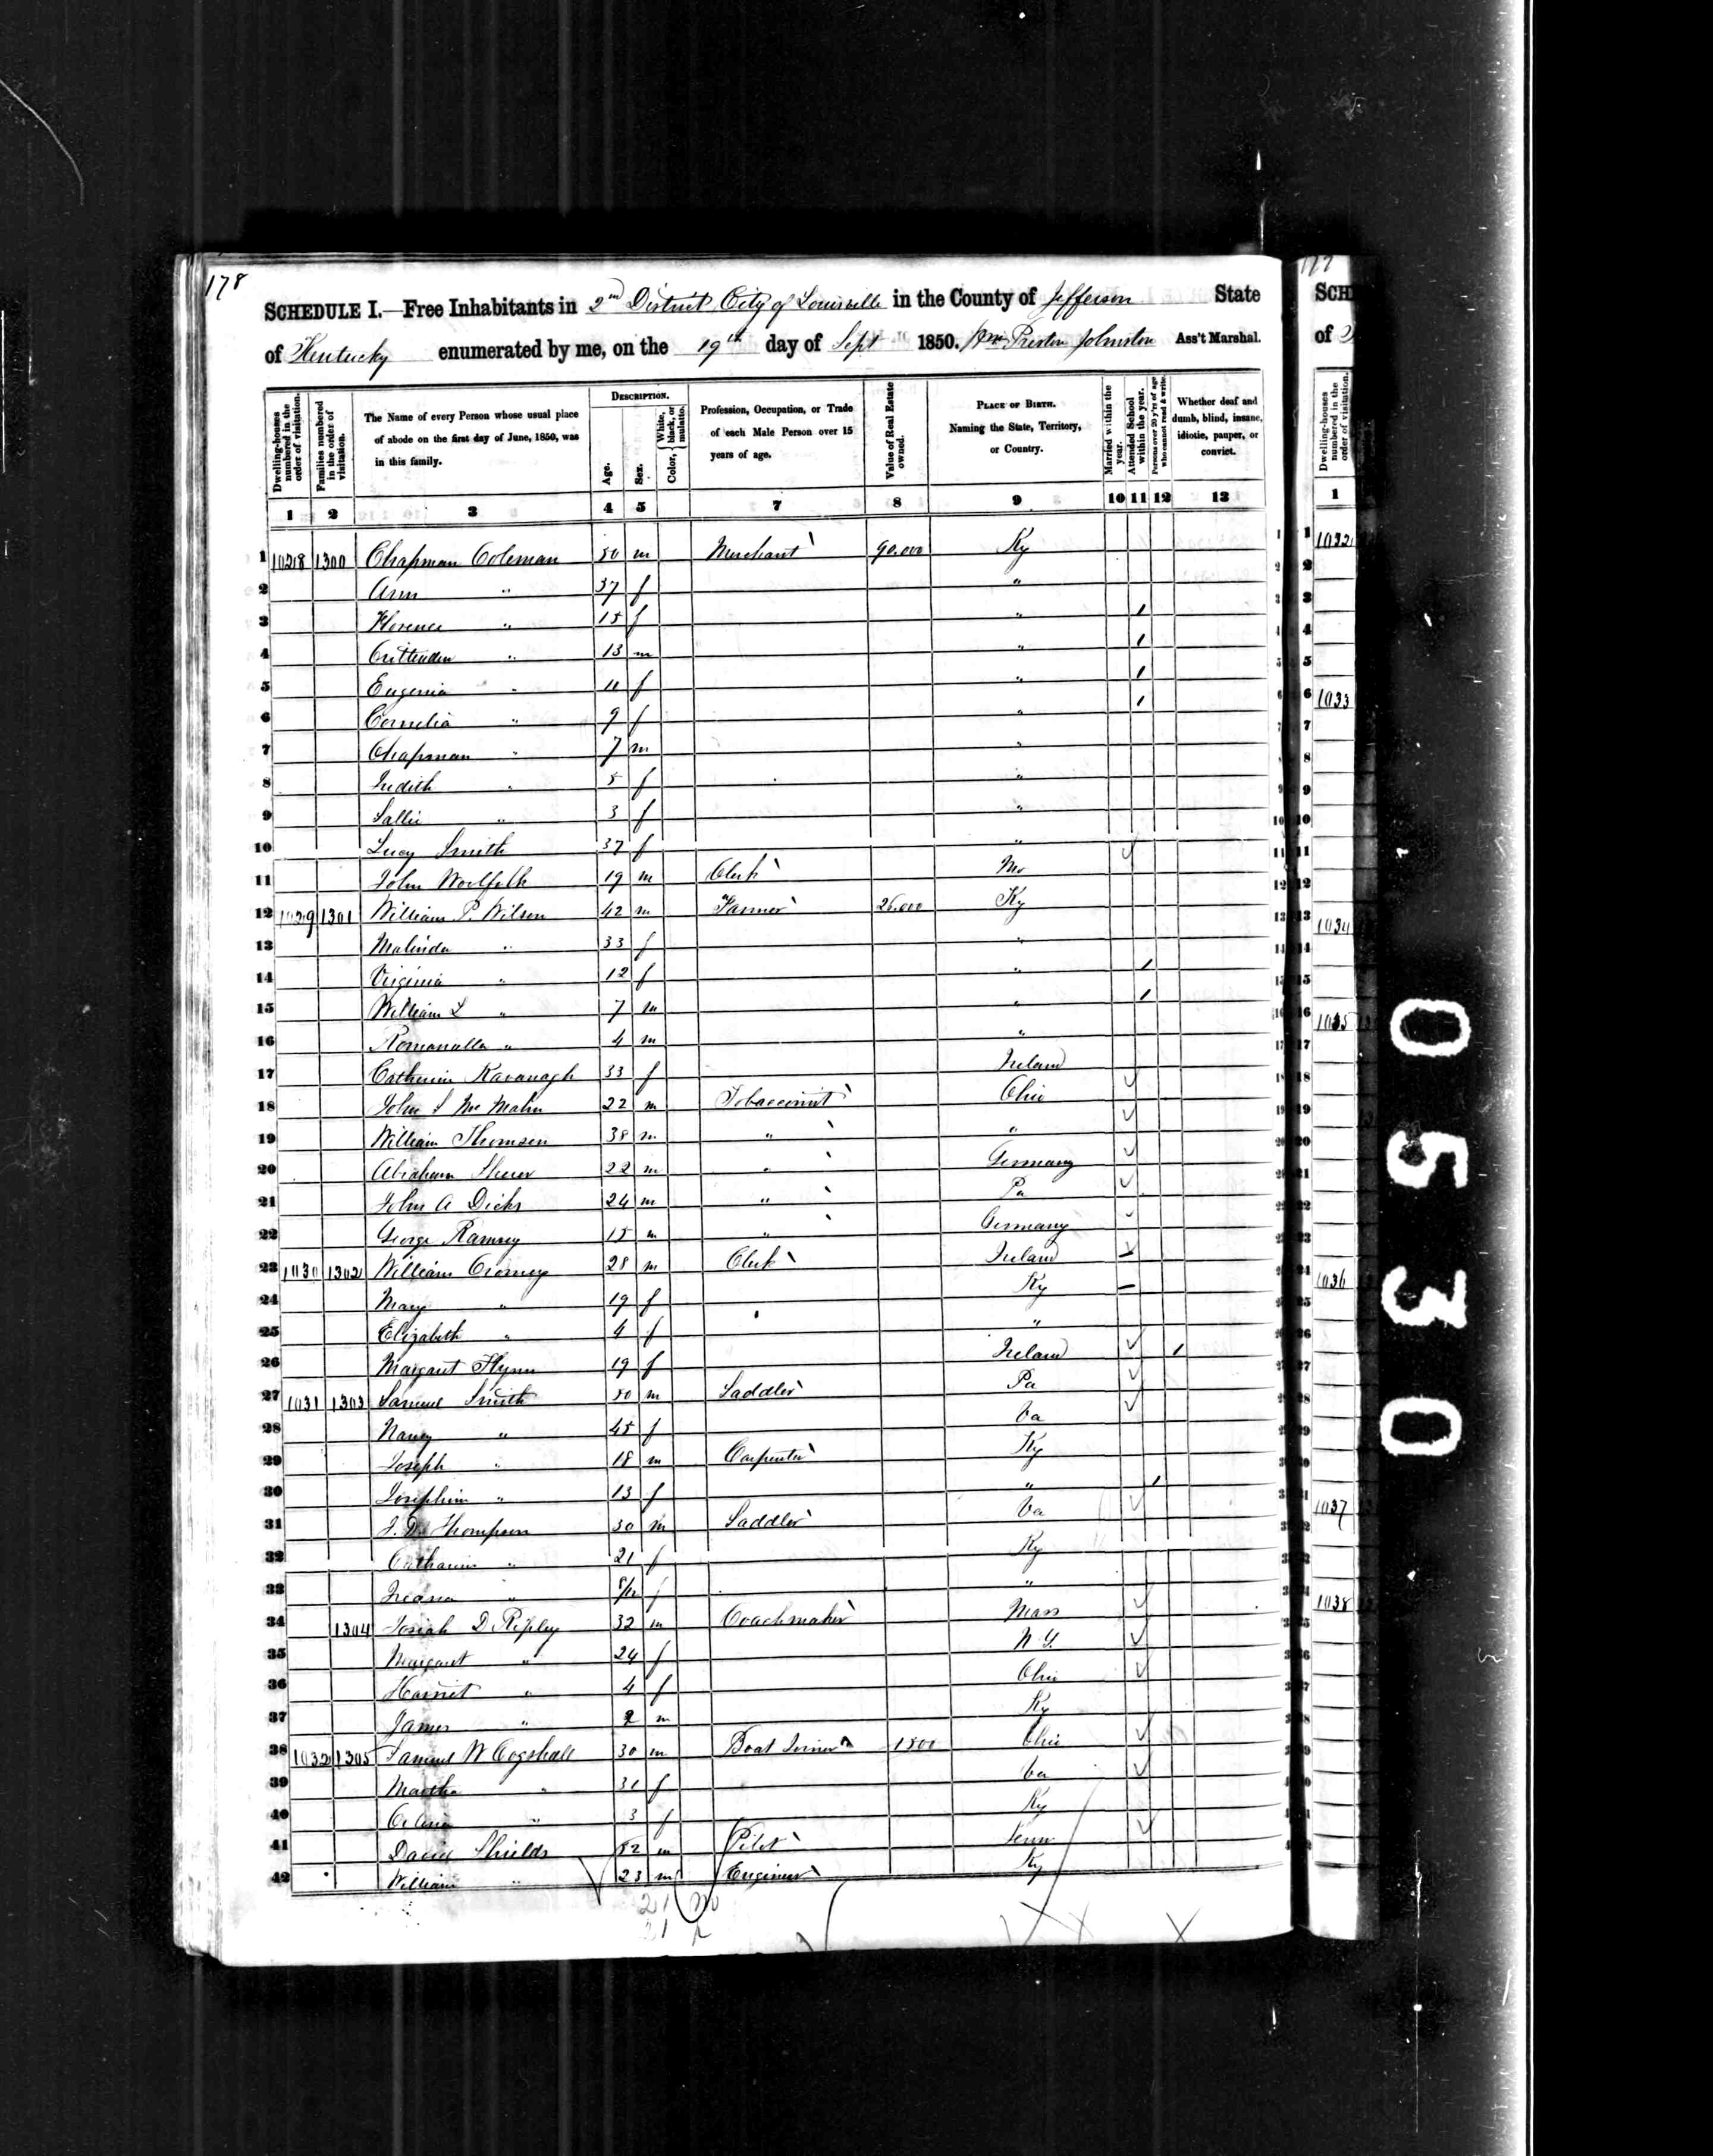 178
SCHEDULE I.—Free Inhabitants in 2nd District City of Louisville in the County of Jefferson State
of Kentucky enumerated by me, on the 19th day of Sept 1850. Wm Preston Johnston Ass't Marshal.
Dwelling-houses numbered in the order of visitation.
Families numbered in the order of visitation.
The Name of every Person whose usual place of abode on the first day of June, 1850, was in this family.
DESCRIPTION.
Age.
Sex.
Color, White, black, or mulatto.
Profession, Occupation, or Trade of each Male Person over 15 years of age.
Value of Real Estate owned.
PLACE OF BIRTH. Naming the State, Territory, or Country.
Married within the year.
Attended School within the year.
Persons over 20 y'rs of age who cannot read & write.
Whether deaf and dumb, blind, insane, idiotic, pauper, or convict.
1 2 3 4 5 6 7 8 9 10 11 12 13
1 1028 1300 Chapman Coleman 50 m Merchant 90.000 Ky
2 Ann " 37 f "
3 Florence " 15 f " 1
4 Crittenden " 13 m " 1
5 Eugenia " 11 f " 1
6 Cornelia " 9 f " 1
7 Chapman " 7 m "
8 Judith " 5 f "
9 Sallie " 3 f "
10 Lucy Smith 37 f "
11 John Woolfolk 19 m Clerk Mo
12 1029 1301 William P. Wilson 42 m Farmer 26.000 Ky
13 Malinda " 33 f "
14 Virginia " 12 f " 1
15 William L " 7 m " 1
16 Romanalla " 4 m "
17 Catherine Kavanagh 33 f Ireland
18 John S Mc Mahn 22 m Tobacconist Ohio
19 William Thomson 38 m " "
20 Abraham 22 m " Germany
21 John A Dicks 24 m " Pa
22 George Ramsey 15 m " Germany
23 1030 1302 William 28 m Clerk Ireland
24 Mary " 19 f Ky
25 Elizabeth " 4 f "
26 Margaret Flynn 19 f Ireland 1
27 1031 1303 Samuel Smith 50 m Saddler Pa
28 Nancy " 45 f Va
29 Joseph " 18 m Carpenter Ky
30 Josephine " 13 f " 1
31 J. D. Thompson 30 m Saddler Va
32 Catharine " 21 f Ky
33 " f "
34 1304 Josiah D Ripley 32 m Coachmaker Mass
35 Margaret " 24 f N.Y.
36 Harriet " 4 f Ohio
37 James " 2 m Ky
38 1032 1305 Samuel W Cogshall 30 m Boat Joiner 1500 Ohio
39 Martha " 31 f Va
40 " 3 f Ky
41 David Shields 52 m Pilot Tenn
42 William " 23 m Engineer Ky
21 m
21
SCH
of
Dwelling-houses numbered in the order of visitation.
1
1032
1033
1034
1035
1036
1037
1038
0530